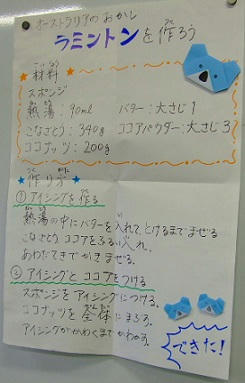 オーストラリアのおかし
ラミントンを作ろう
ざいりょう
★材料
スポンジ
ねっとう
熱湯：90ml　バター：大さじ1
こなざとう：340g　ココアパウダー：大さじ3
ココナッツ：200g
つく　かた
★作り方★
①アイシングを作る
ねっとう
熱湯の中にバターを入れて、とけるまでまぜる
こなざとう ココアをふるい入れ、
あわだてきでかきまぜる。
②アイシングとココアをつける
スポンジをアイシングにつける。
ココナッツを全体にまぶす。
アイシングがかわくまでかわかす。
できた!